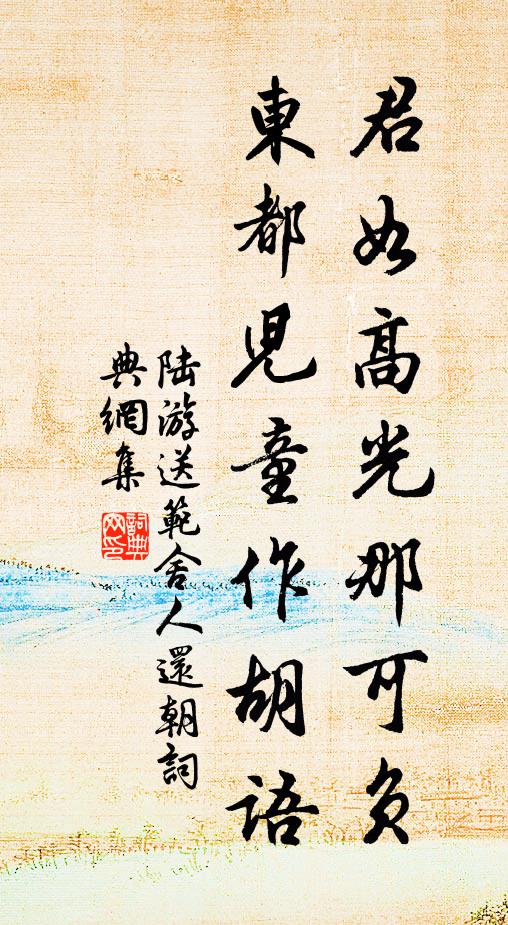 君如高光那可负
東都児童作胡语
陆游送範舍人還朝詞
典網集
詞典
网印